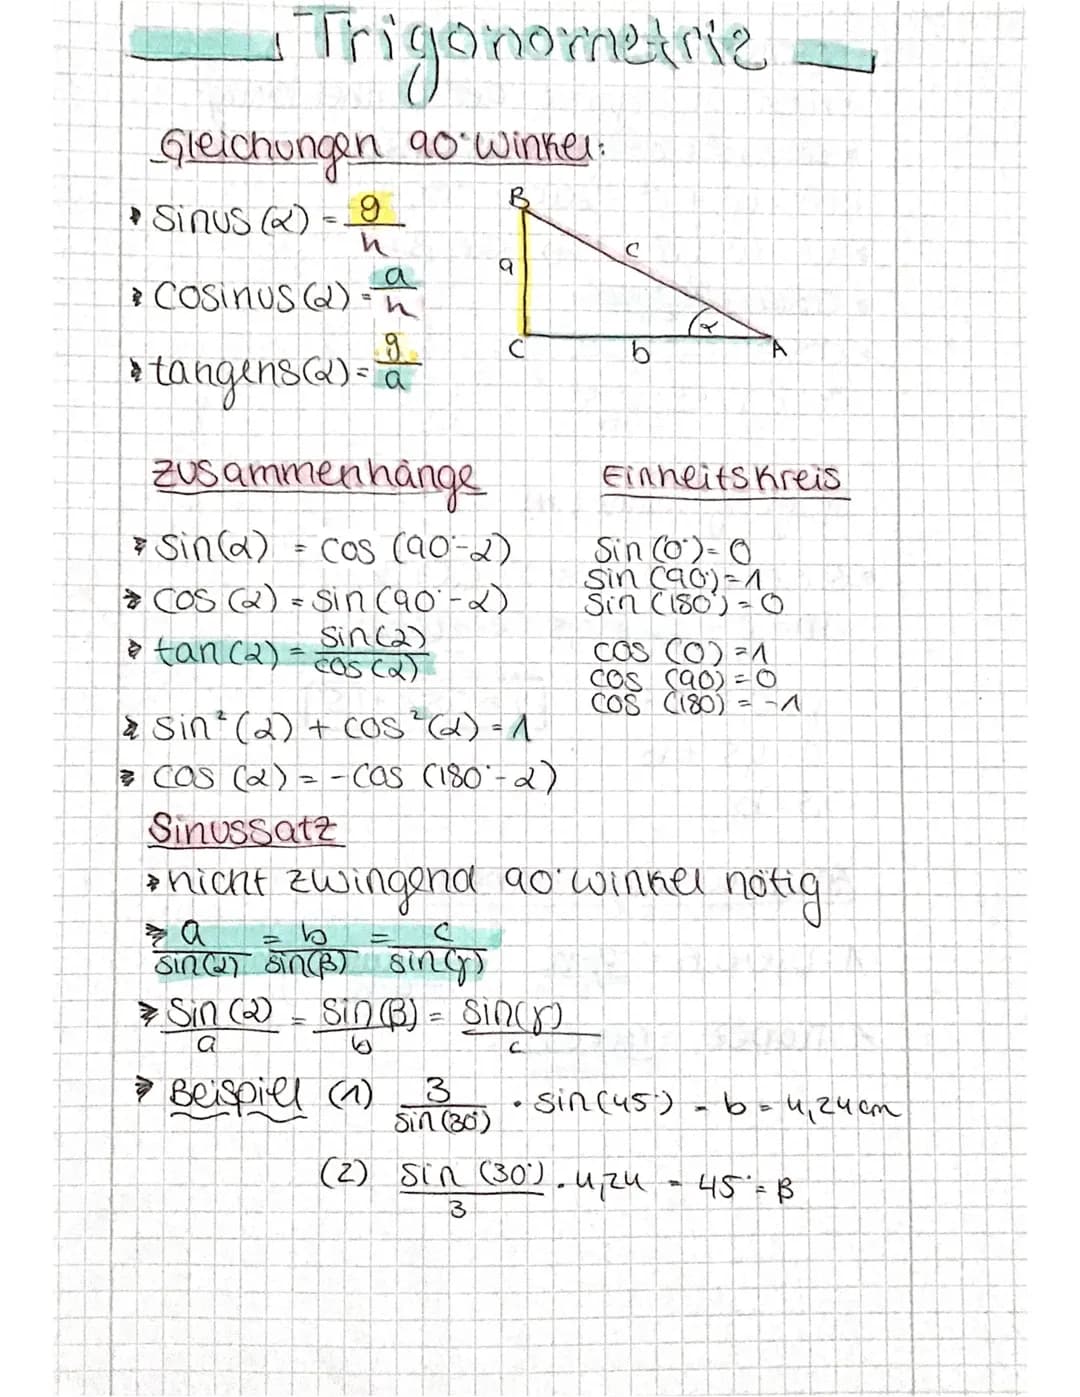 Trigonometrie
Gleichungen 90° Winkel:
Sinus (α) = g/h
Cosinus (α) = a/h
tangens (α) = g/a
B
a
c
α
C
b
A
Zusammenhänge
sin(α) = cos (90°-α)
cos (α) = sin (90°-α)
tan (α) = sin(α)/cos(α)
sin²(α) + cos²(α) = 1
cos (α) = -cos (180°-α)
Einheitskreis
Sin (0°) = 0
Sin (90°) = 1
Sin (180°) = 0
cos (0) = 1
cos (90) = 0
cos (180) = -1
Sinussatz
nicht zwingend 90° winkel nötig
a/sin(α) = b/sin(β) = c/sin(γ)
Sin(α)/a = Sin(β)/b = Sin(γ)/c
Beispiel (1) 3/Sin(30°) · sin(45°) = b = 4,24cm
(2) Sin (30°)/3 · 4,24 = 45° = β